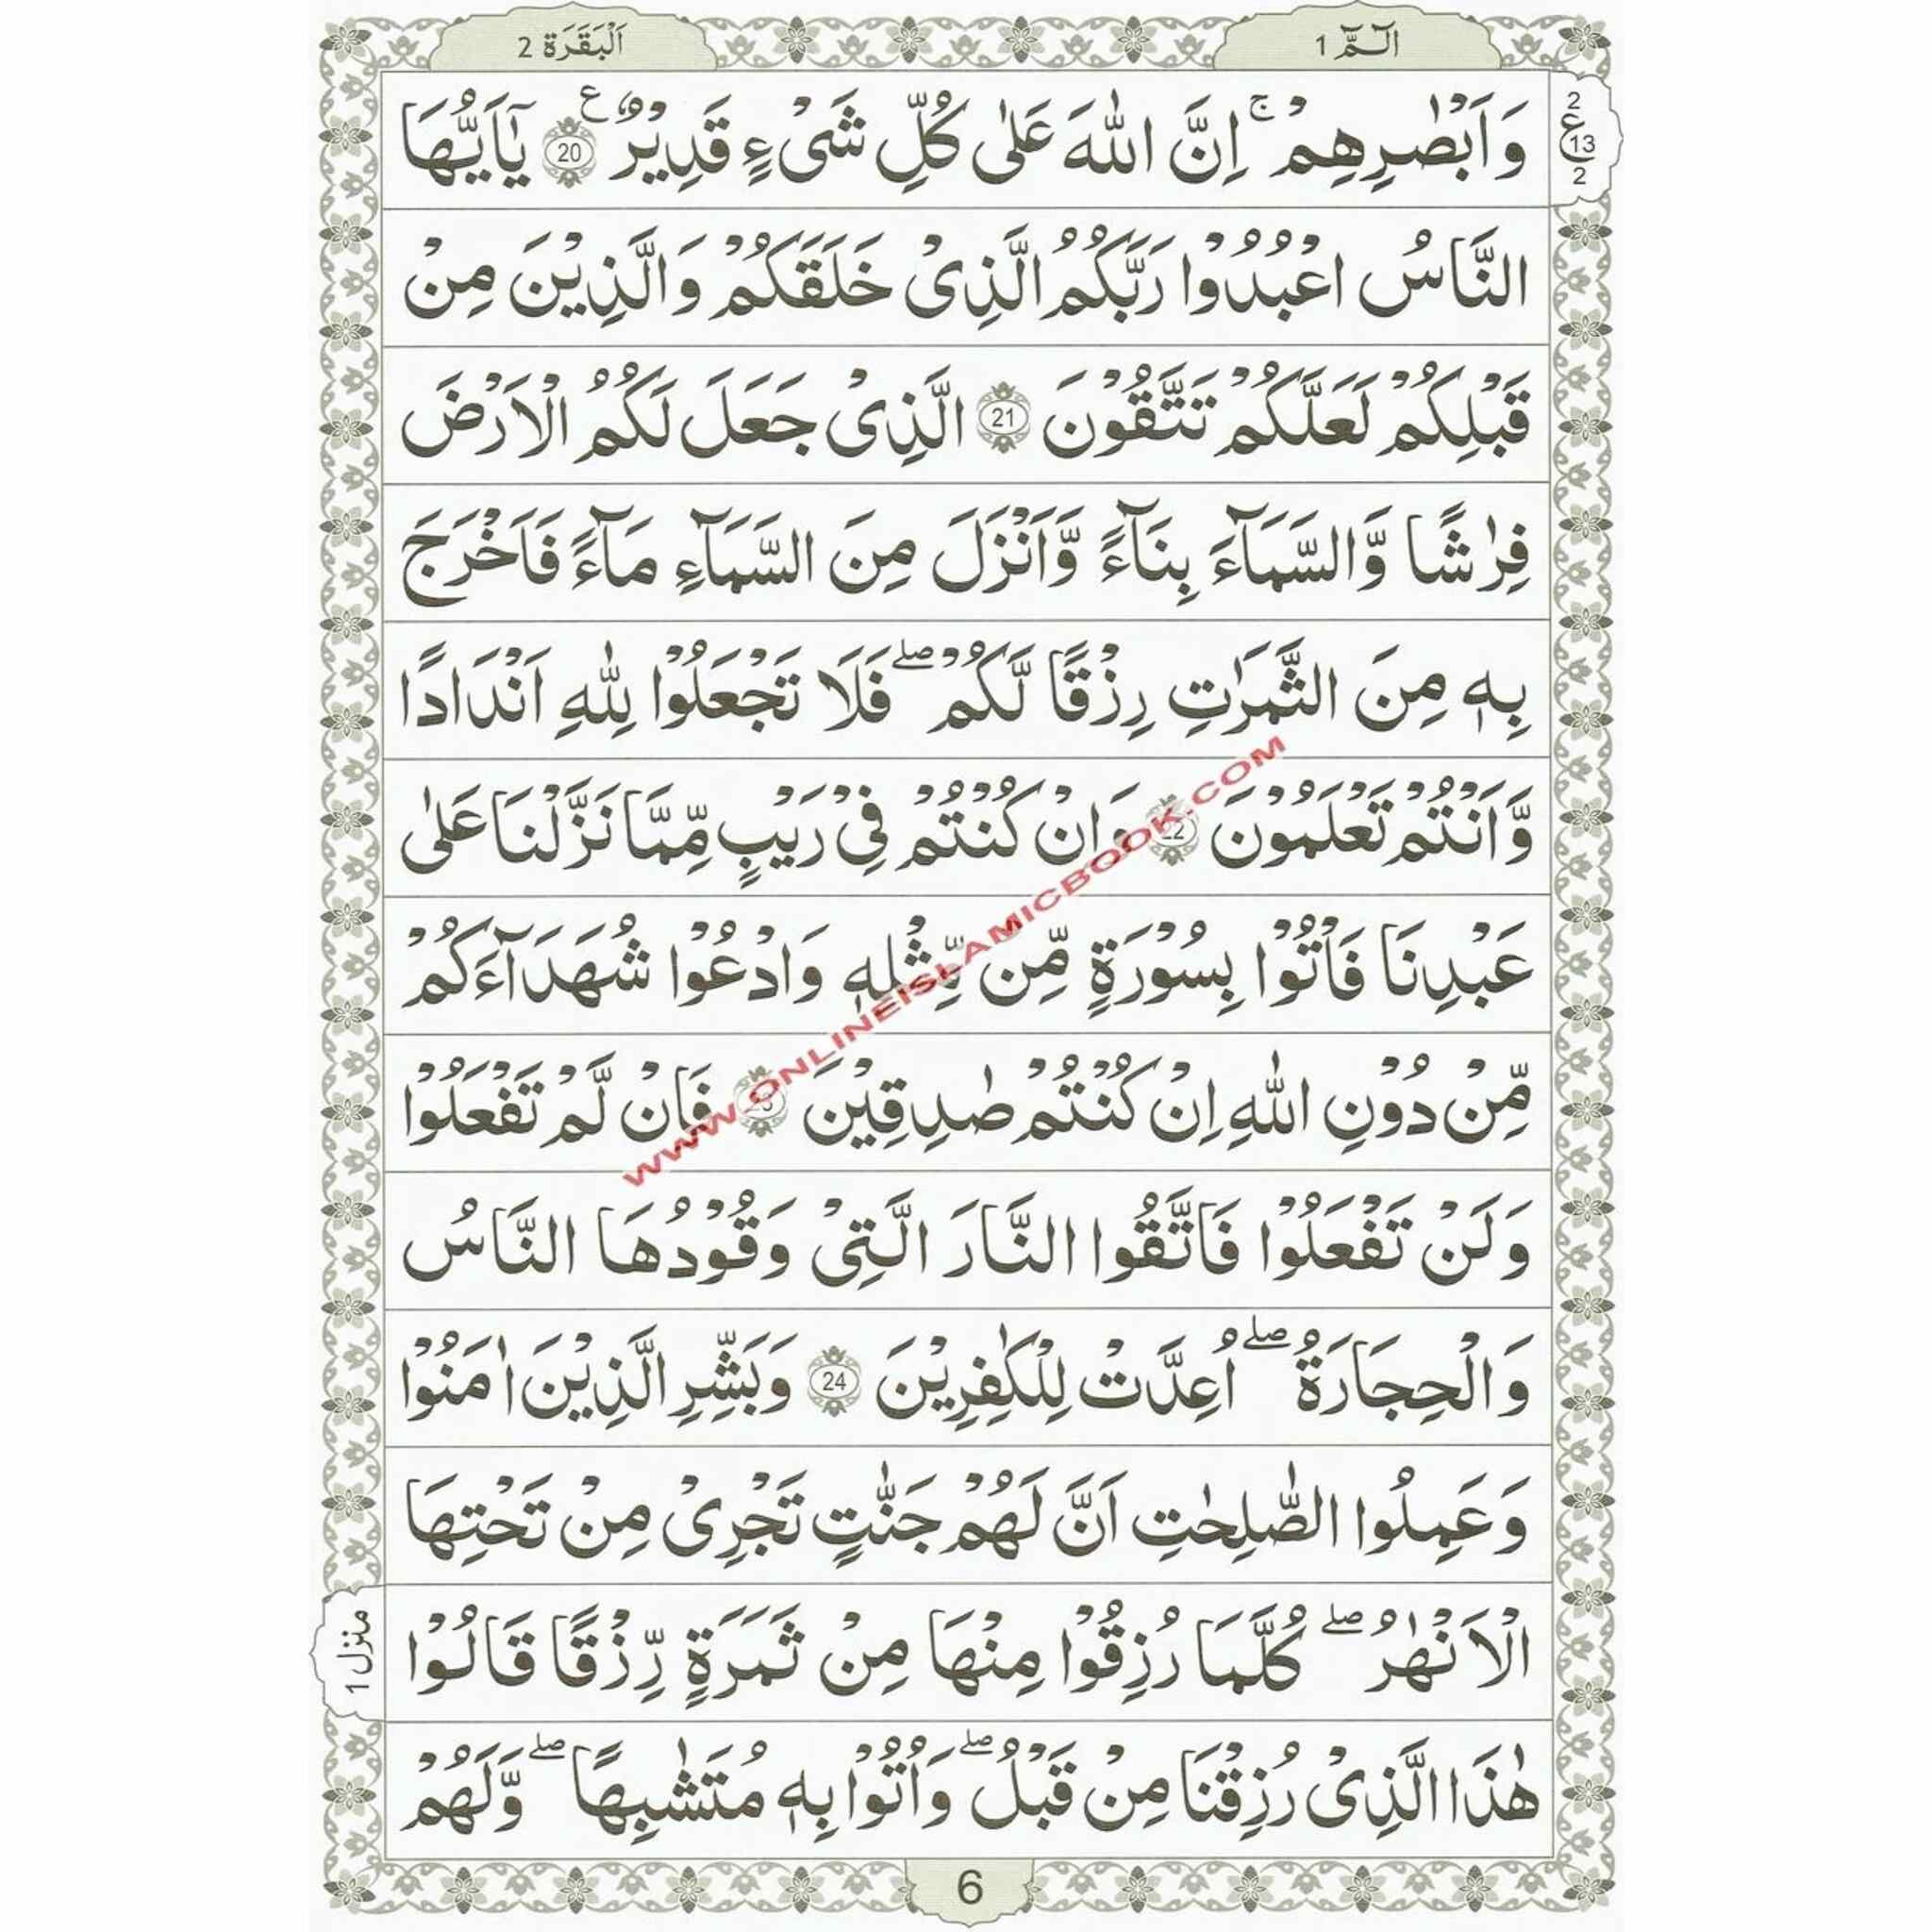 الٓـمّٓ 1
اَلْبَقَرَة 2
2
ع
13
2
وَاَبْصٰرِهِمْ ۚ اِنَّ اللّٰهَ عَلٰى كُلِّ شَیْءٍ قَدِیْرٌ ۧ 20 یٰۤاَیُّهَا
النَّاسُ اعْبُدُوْا رَبَّكُمُ الَّذِیْ خَلَقَكُمْ وَالَّذِیْنَ مِنْ
قَبْلِكُمْ لَعَلَّكُمْ تَتَّقُوْنَ 21 الَّذِیْ جَعَلَ لَكُمُ الْاَرْضَ
فِرٰشًا وَّالسَّمَآءَ بِنَآءً وَّاَنْزَلَ مِنَ السَّمَآءِ مَآءً فَاَخْرَجَ
بِهٖ مِنَ الثَّمَرٰتِ رِزْقًا لَّكُمْ ۖ فَلَا تَجْعَلُوْا لِلّٰهِ اَنْدَادًا
وَّاَنْتُمْ تَعْلَمُوْنَ 22 وَاِنْ كُنْتُمْ فِیْ رَیْبٍ مِّمَّا نَزَّلْنَا عَلٰى
عَبْدِنَا فَاْتُوْا بِسُوْرَةٍ مِّنْ مِّثْلِهٖ وَادْعُوْا شُهَدَآءَكُمْ
مِّنْ دُوْنِ اللّٰهِ اِنْ كُنْتُمْ صٰدِقِیْنَ 23 فَاِنْ لَّمْ تَفْعَلُوْا
وَلَنْ تَفْعَلُوْا فَاتَّقُوا النَّارَ الَّتِیْ وَقُوْدُهَا النَّاسُ
وَالْحِجَارَةُ ۖ اُعِدَّتْ لِلْكٰفِرِیْنَ 24 وَبَشِّرِ الَّذِیْنَ اٰمَنُوْا
وَعَمِلُوا الصّٰلِحٰتِ اَنَّ لَهُمْ جَنّٰتٍ تَجْرِیْ مِنْ تَحْتِهَا
الْاَنْهٰرُ ۖ كُلَّمَا رُزِقُوْا مِنْهَا مِنْ ثَمَرَةٍ رِّزْقًا قَالُوْا
هٰذَا الَّذِیْ رُزِقْنَا مِنْ قَبْلُ ۖ وَاُتُوْا بِهٖ مُتَشٰبِهًا ۖ وَّلَهُمْ
منزل 1
6
WWW.ONLINEISLAMICBOOK.COM